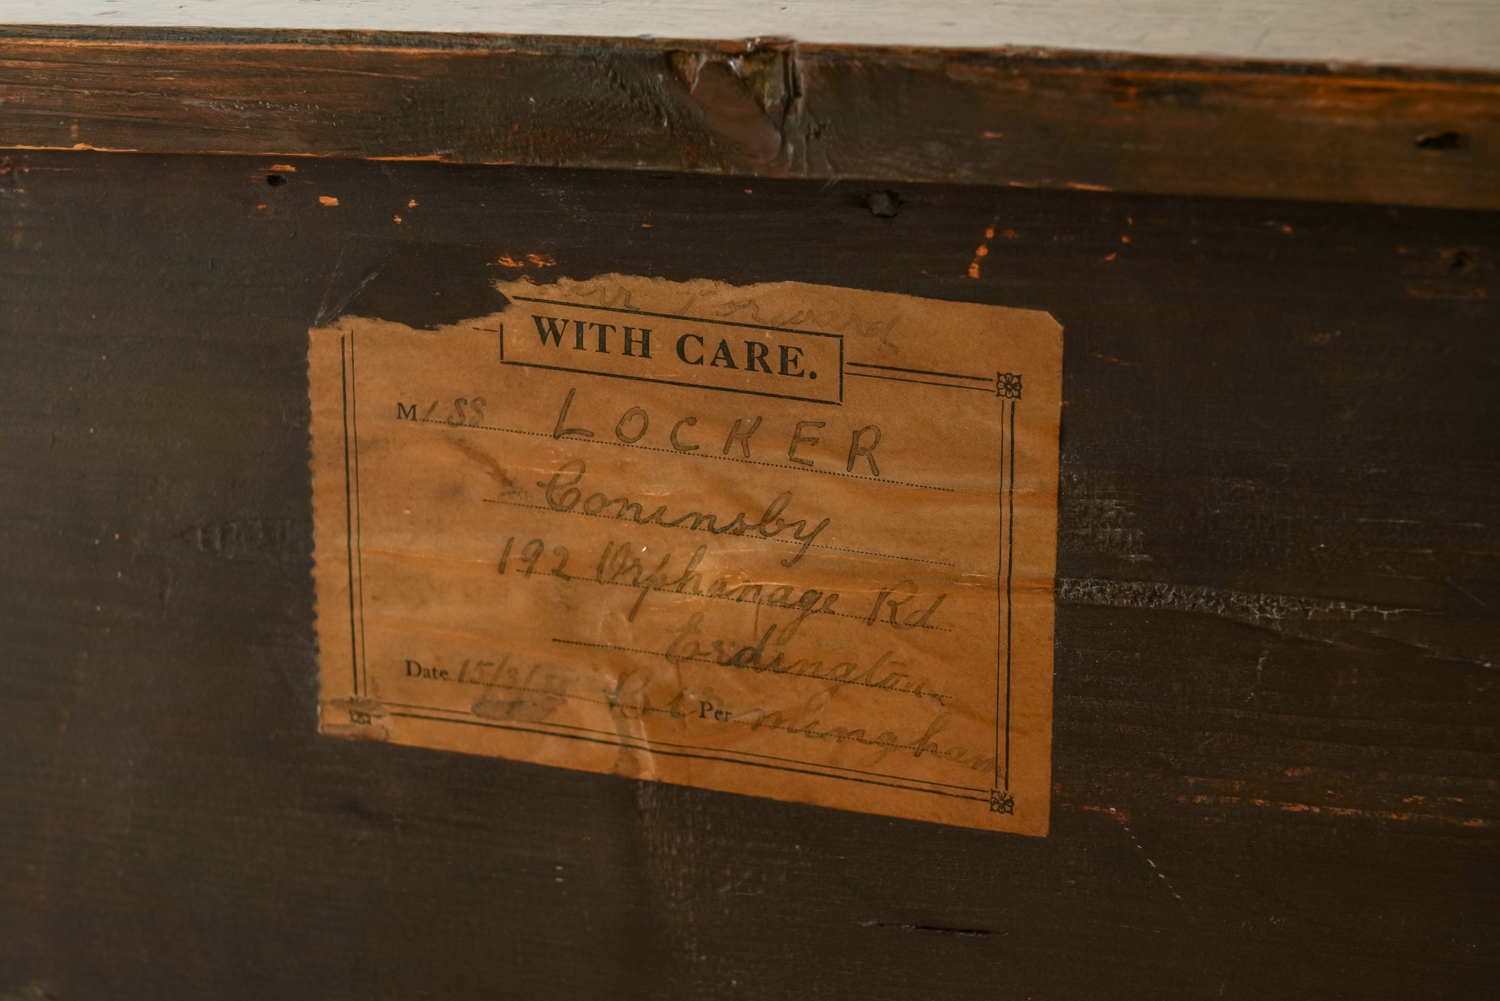 Forward
WITH CARE.
Miss LOCKER
Coninsby
192 Orphanage Rd
Erdington
Date 15/9/
Birmingham
Per